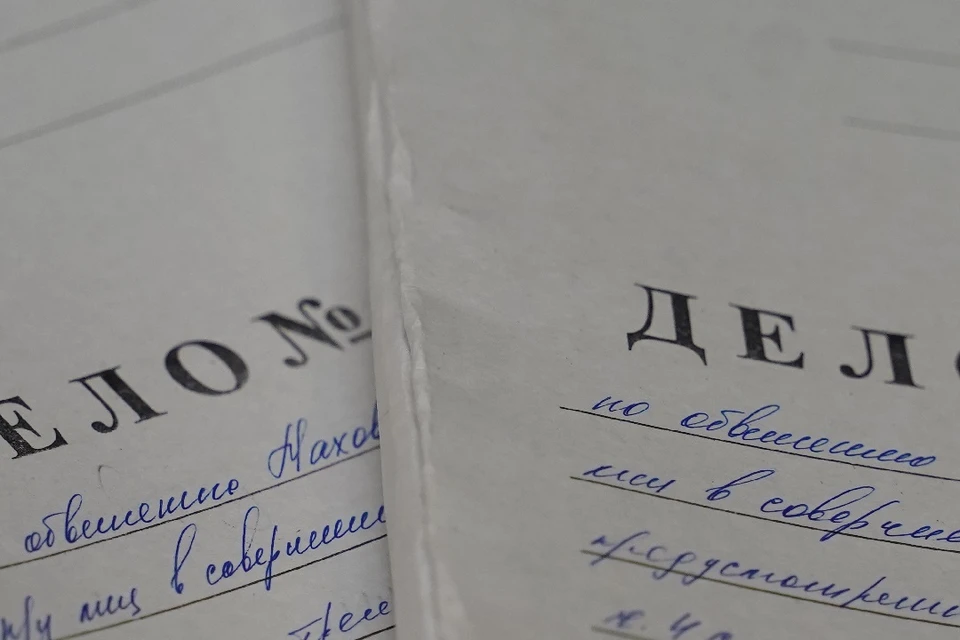 ЕЛО №
обвинению Махов
лиц в совершении
ДЕЛО
по обвинению
лиц в соверше
предусмотренн